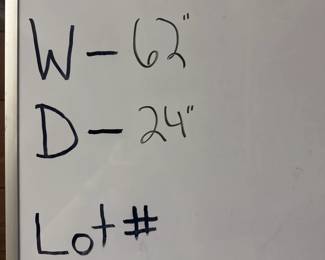 W - 62"
D - 24"
Lot #